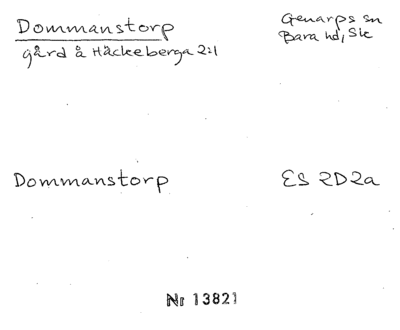 Dommanstorp
Genarps sn
gård å Häckeberga 2:1
Bara hd, Sk
Dommanstorp
ES 2D2a
Nr 13821